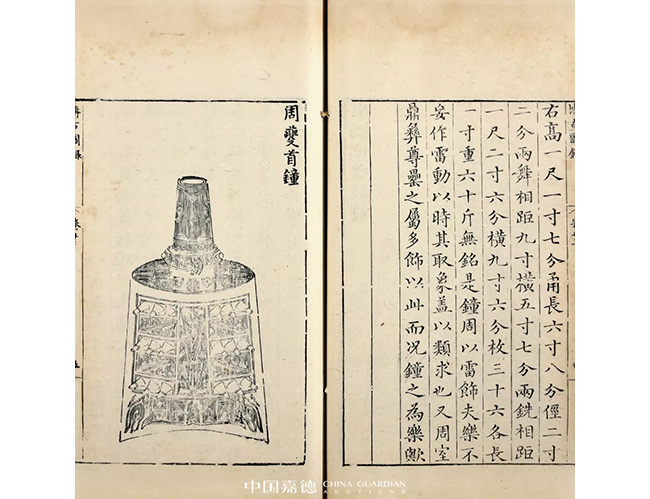 右高一尺一寸七分甬長六寸八分徑二寸
二分兩舞相距九寸橫五寸七分兩銑相距
一尺二寸六分橫九寸六分枚三十六各長
一寸重六十斤無銘是鐘周以雷飾夫樂不
妄作雷動以時其取象蓋以類求也又周室
鼎彝尊罍之屬多飾以此而况鐘之為樂歟
周夔首鐘
中国嘉德 CHINA GUARDIAN
AUCTIONS